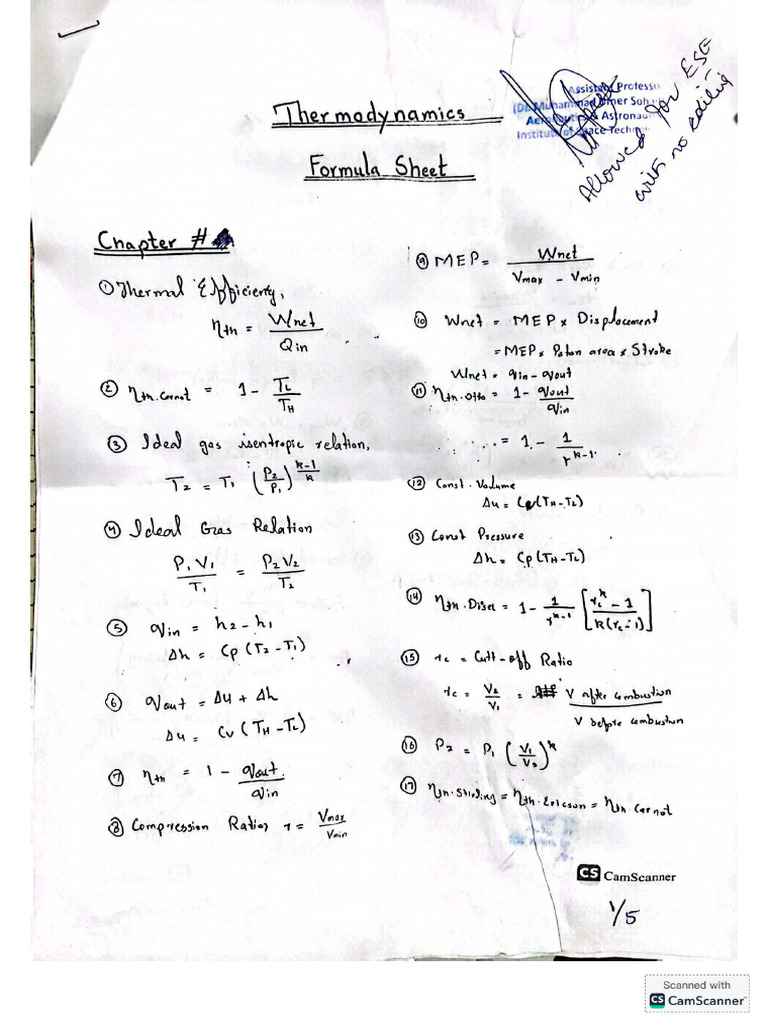 Thermodynamics
Formula Sheet
Assistant Professo
(Dr. Muhammad Umer Soh
Aeronautics & Astronau
Institute of Space Techn
Allowed for ESE
with no editing
Chapter #
① Thermal Efficiency,
ηth = Wnet / Qin
② ηth.Carnot = 1 - TL / TH
③ Ideal gas isentropic relation,
T2 = T1 (P2/P1)^(k-1/k)
④ Ideal Gas Relation
P1V1 / T1 = P2V2 / T2
⑤ qin = h2 - h1
Δh = Cp (T2 - T1)
⑥ qout = Δu + Δh
Δu = Cv (TH - TL)
⑦ ηth = 1 - qout / qin
⑧ Compression Ratio, r = Vmax / Vmin
⑨ MEP = Wnet / Vmax - Vmin
⑩ Wnet = MEP x Displacement
= MEP x Piston area x Stroke
Wnet = qin - qout
⑪ ηth.Otto = 1 - qout / qin
= 1 - 1 / r^k-1
⑫ Const. Volume
Δu = (TH - TL)
⑬ Const Pressure
Δh = Cp (TH - TL)
⑭ ηth.Disel = 1 - 1 / r^k-1 [rc^k - 1 / k(rc - 1)]
⑮ rc = Cutt-off Ratio
rc = V2 / V1 = V after combustion / V before combustion
⑯ P2 = P1 (V1/V2)^k
⑰ ηth.Stirling = ηth.Ericson = ηth Carnot
CS CamScanner
1/5
Scanned with
CS CamScanner